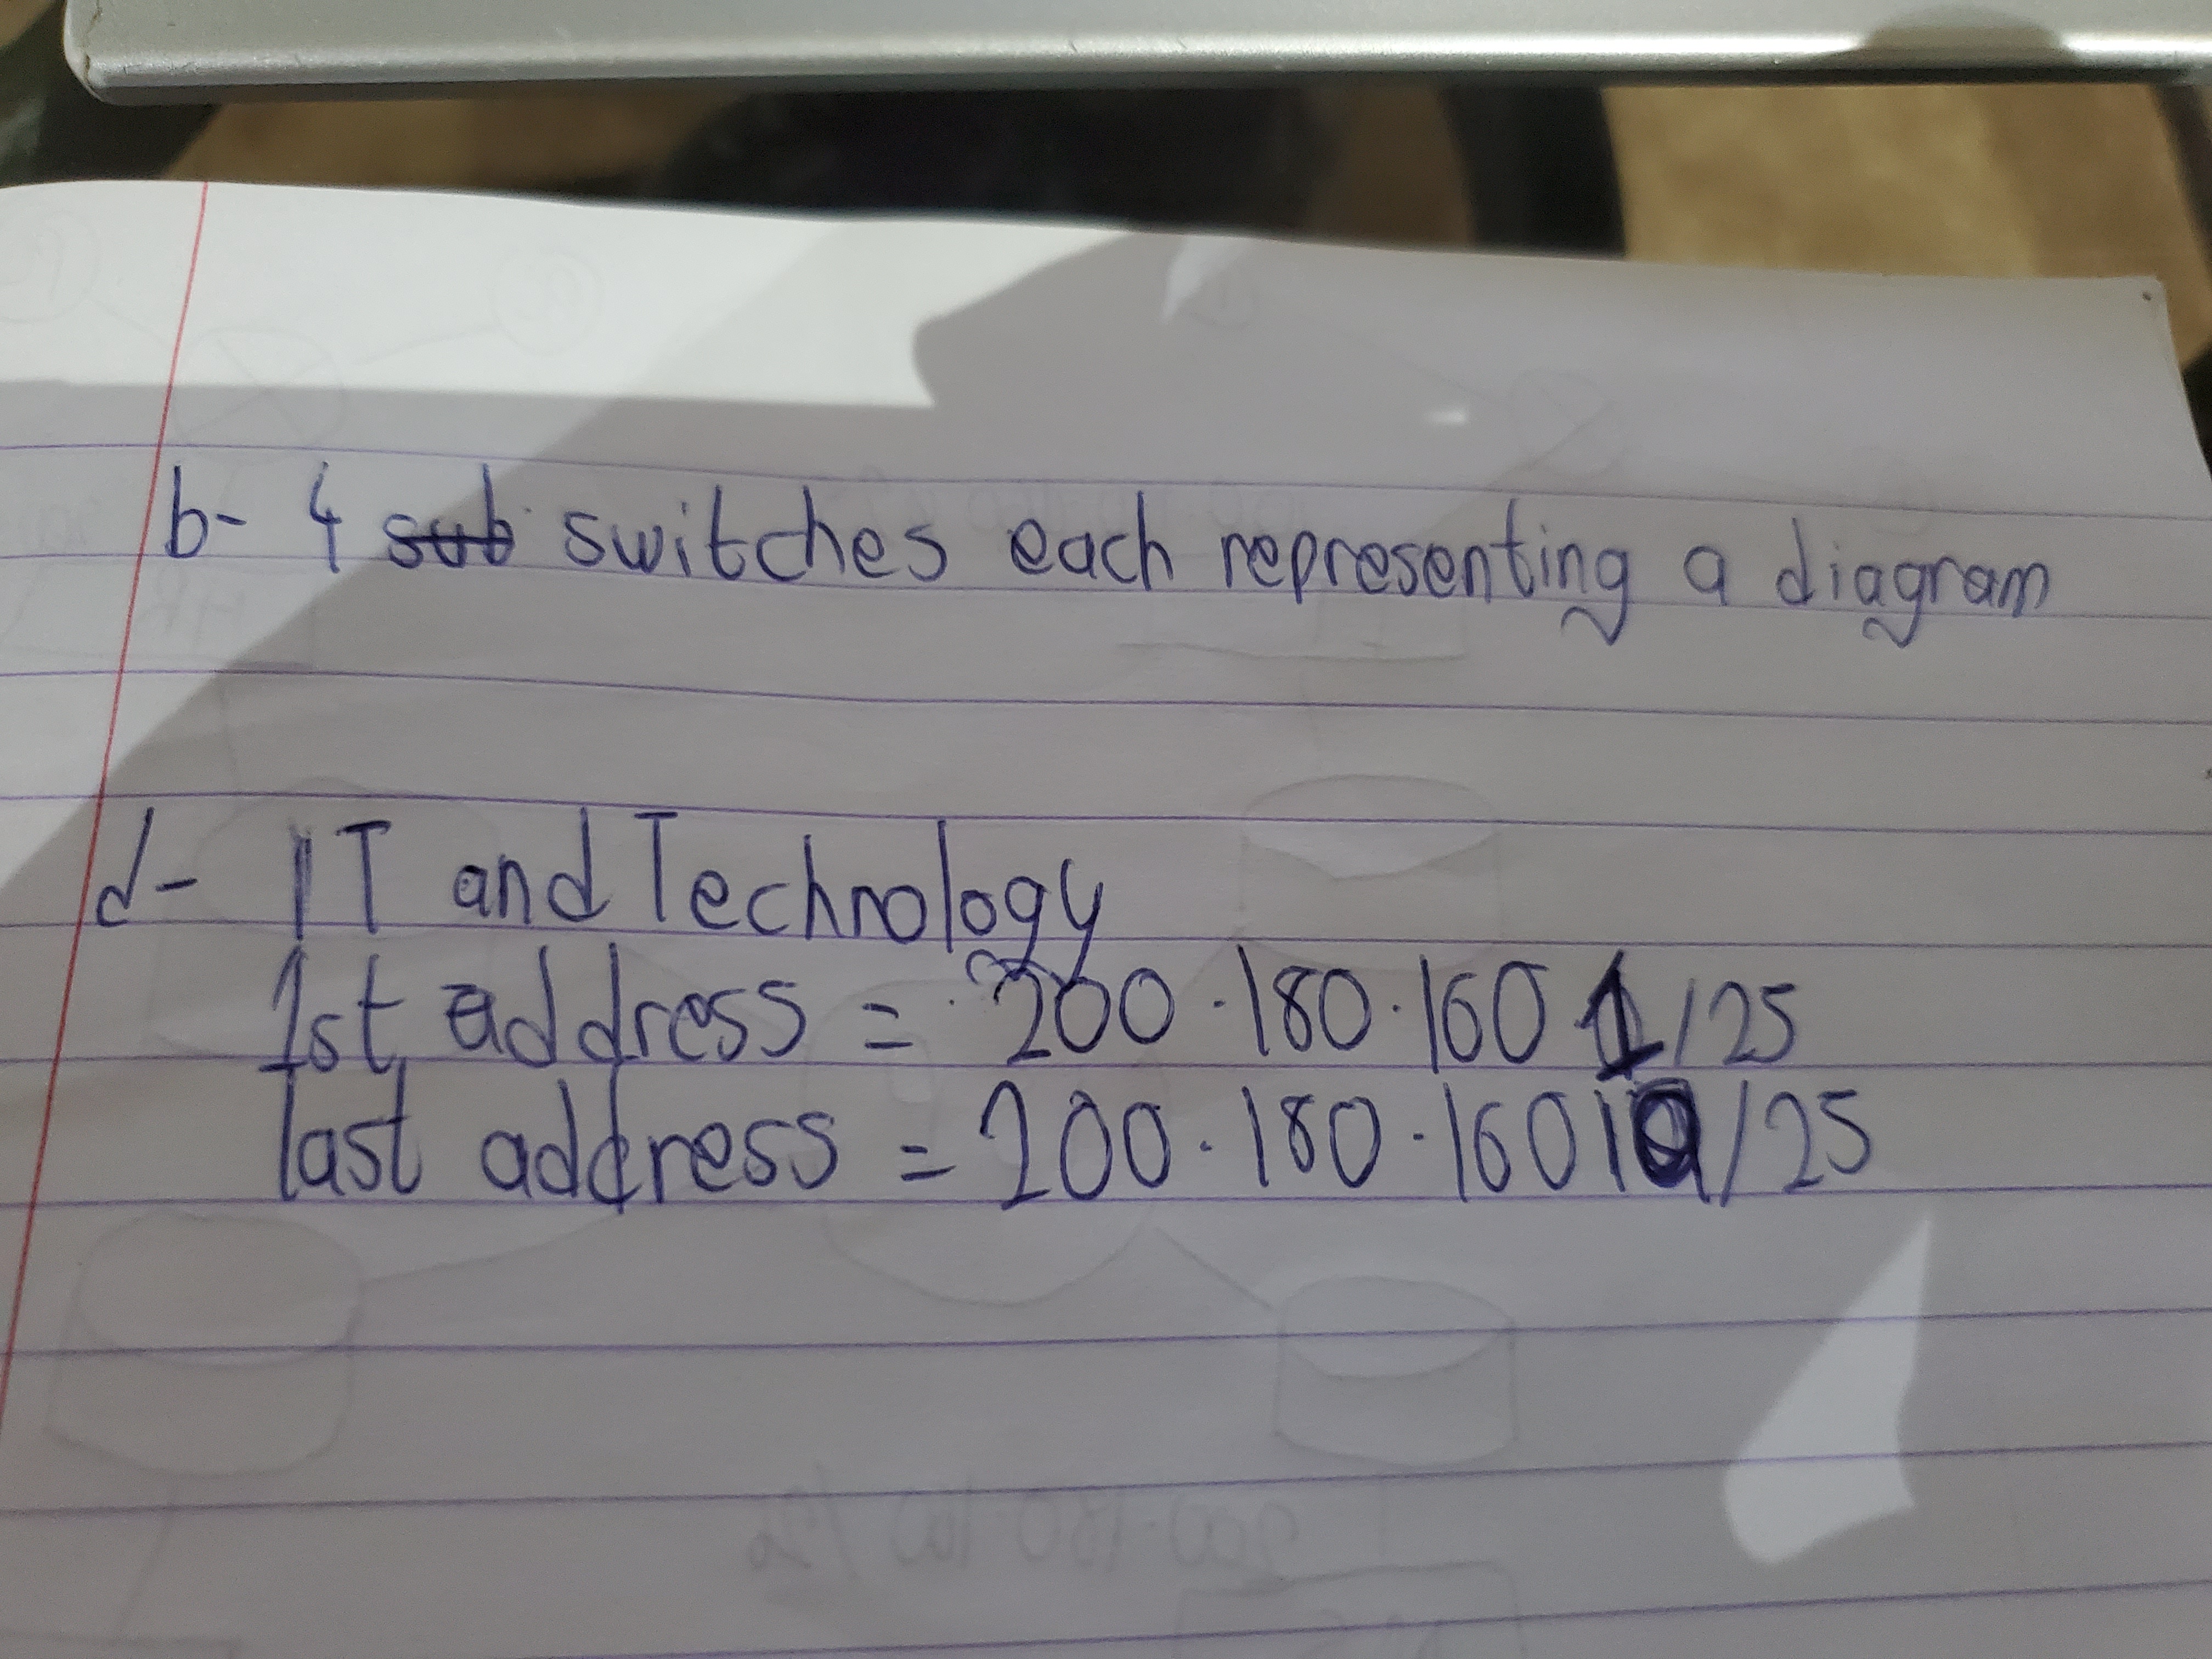 b- 4 sub switches each representing a diagram
d- IT and Technology
1st address = 200.180.160 1/25
last address = 200.180.160 10/25